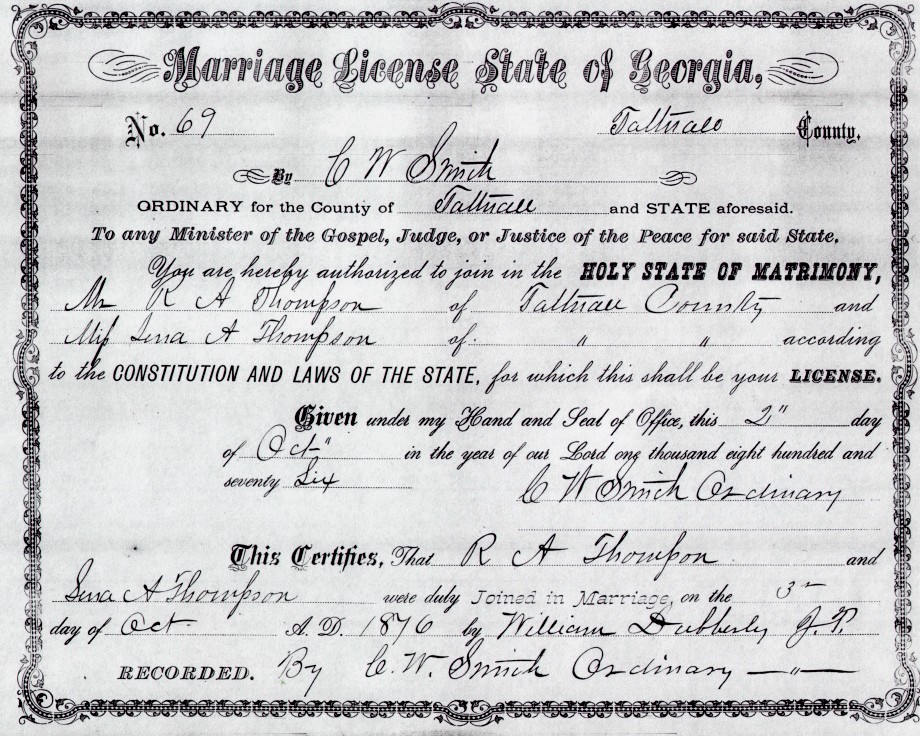 Marriage License State of Georgia.
No. 69 Tattnall County.
By C W Smith
ORDINARY for the County of Tattnall and STATE aforesaid.
To any Minister of the Gospel, Judge, or Justice of the Peace for said State.
You are hereby authorized to join in the HOLY STATE OF MATRIMONY,
Mr R A Thompson of Tattnall County and
Miss A Thompson of " " according
to the CONSTITUTION AND LAWS OF THE STATE, for which this shall be your LICENSE.
Given under my Hand and Seal of Office, this 2" day
of Oct" in the year of our Lord one thousand eight hundred and
seventy Six
C W Smith Ordinary
This Certifies, That R A Thompson and
A Thompson were duly Joined in Marriage, on the 3 day
day of Oct A. D. 1876 by William Dubberly J. P.
RECORDED. By C. W. Smith Ordinary — " —